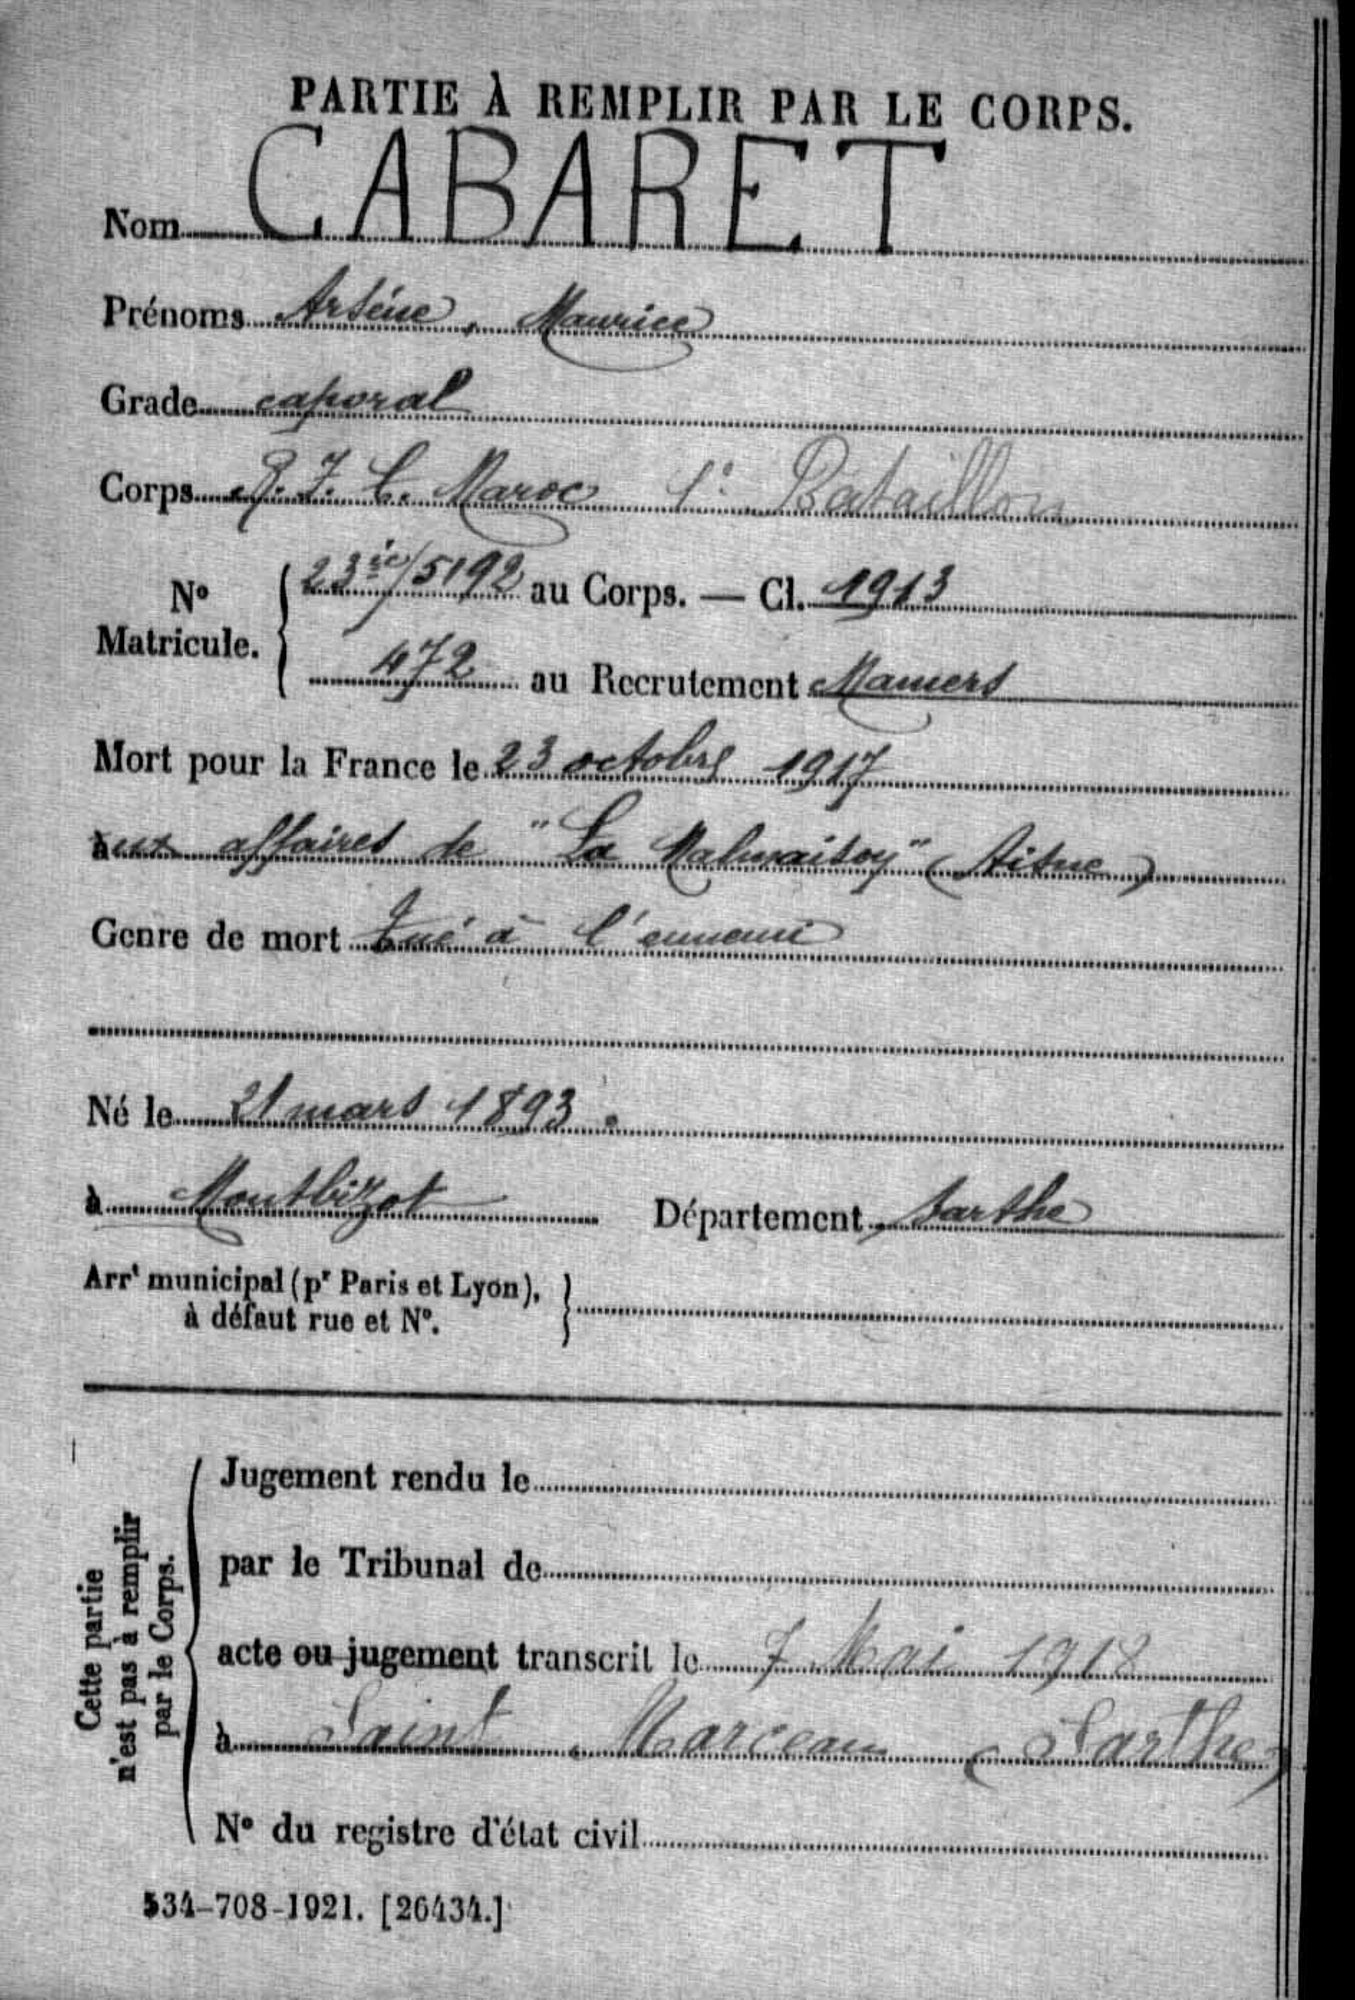 PARTIE À REMPLIR PAR LE CORPS.
Nom CABARET
Prénoms Arsène, Maurice
Grade caporal
Corps R. I. C. Maroc 1er Bataillon
No Matricule. { 23ic/5192 au Corps. — Cl. 1913
472 au Recrutement Mamers
Mort pour la France le 23 octobre 1917
aux affaires de "La Malmaison" (Aisne)
Genre de mort Tué à l'ennemi
Né le 21 mars 1893.
à Montbizot Département Sarthe
Arrt municipal (pr Paris et Lyon),
à défaut rue et No.
Cette partie
n'est pas à remplir
par le Corps.
Jugement rendu le
par le Tribunal de
acte ou jugement transcrit le 7 Mai 1918
à Saint-Marceau (Sarthe)
No du registre d'état civil
534-708-1921. [26434.]